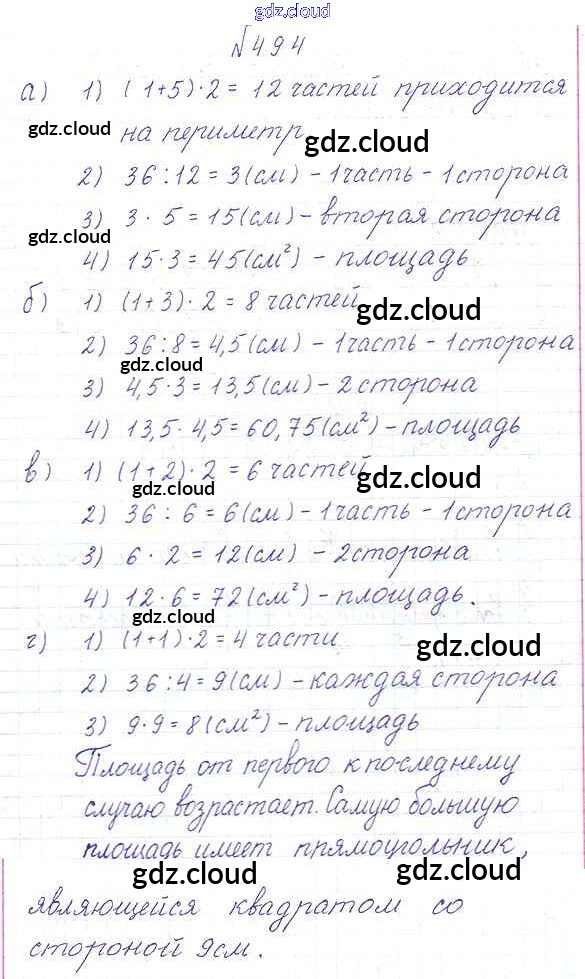 gdz.cloud
№494
а) 1) (1+5)·2 = 12 частей приходится
gdz.cloud
на периметр gdz.cloud
2) 36:12 = 3(см) - 1часть - 1сторона
3) 3 · 5 = 15(см) - вторая сторона
gdz.cloud
4) 15·3 = 45(см²) - площадь
б) 1) (1+3)·2 = 8 частей gdz.cloud
2) 36:8 = 4,5(см) - 1часть - 1сторона
gdz.cloud
3) 4,5·3 = 13,5(см) - 2сторона
4) 13,5·4,5 = 60,75(см²) - площадь
в) 1) (1+2)·2 = 6 частей
gdz.cloud gdz.cloud
2) 36 : 6 = 6(см) - 1часть - 1сторона
3) 6 · 2 = 12(см) - 2сторона
4) 12·6 = 72(см²) - площадь.
gdz.cloud
г) 1) (1+1)·2 = 4 части gdz.cloud
2) 36:4 = 9(см) - каждая сторона
3) 9·9 = 8(см²) - площадь
Площадь от первого к последнему
случаю возрастает. Самую большую
площадь имеет прямоугольник,
gdz.cloud gdz.cloud
являющейся квадратом со
стороной 9см.